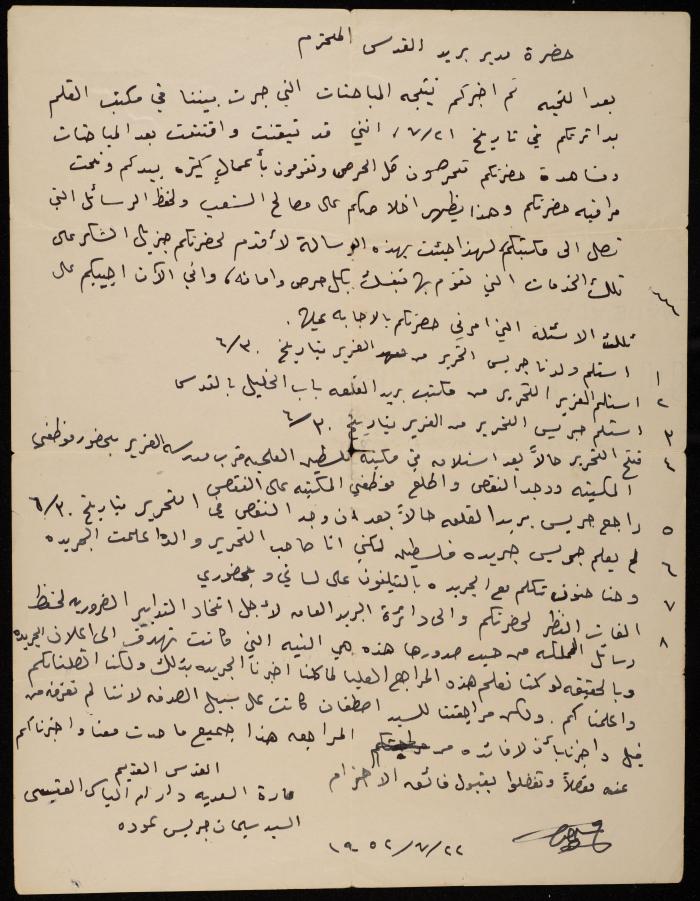 حضرة مدير بريد القدس المحترم
بعد التحيه ثم اخبركم نتيجه المباحثات التي جرت بيننا في مكتب القلم
بدائرتكم في تاريخ ٧/٢١، انني قد تيقنت واقتنعت بعد المباحثات
ومشاهدة حضرتكم تحرصون كل الحرص وتقومون بأعمال كثيره بيدكم وتحت
مراقبه حضرتكم وهذا يظهر اخلاصكم على مصالح الشعب ولحفظ الرسائل التي
تصل الى مكتبكم لهذا جئت بهذه الرسالة لأقدم لحضرتكم جزيل الشكر على
تلك الخدمات التي تقوم بها بنفسك بكل حرص وامانه، واني الآن اجيبكم على
تلك الاسئلة التي امرني حضرتكم بالاجابه عليها.
١ استلم ولدنا جريس التحرير من الفرير بتاريخ ٦/٣٠
٢ استلم الفرير التحرير من مكتب بريد القلعه باب الخليل بالقدس
٣ استلم جريس التحرير من الفرير بتاريخ ٦/٣٠
٤ فتح التحرير حالاً بعد استلامه في مكتبة فلسطين العلميه قرب مدرسه الفرير بحضور موظفي
المكتبه ووجد النقص واطلع موظفي المكتبه على النقص
٥ راجع جريس بريد القلعه حالاً بعد ان وجد النقص في التحرير بتاريخ ٦/٣٠
٦ لم يعلم جريس جريده فلسطين لكني انا صاحب التحرير والده اعلمت الجريده
٧ وحنا حنون تكلم مع الجريده بالتيلفون على لساني وبحضوري
٨ الفات النظر لحضرتكم والى دائرة البريد العامه لأجل اتخاذ التدابير الضروريه لحفظ
رسائل المملكه من حيث صدورها هذه هي النيه التي كانت تهدف الى اعلان الجريده
وبالحقيقه لو كنا نعلم هذه المراجع العليا لما كلنا اخبرنا الجريده بذلك ولكنا اتصلنا بكم
واعلمناكم. ولكن مراجعتنا للسيد اصطفان كانت على سبيل الصدفه لاننا لم نعرفه من
قبل واخبرنا بأن لا فائده من المراجعه هذا جميع ما حدث معنا واخبرناكم
عنه مفصلاً وتفضلوا بقبول فائقه الاحترام
القدس القديم
حارة السعديه دار الياس
السيد سليمان جريس عوده
١٩٥٢/٧/٢٢